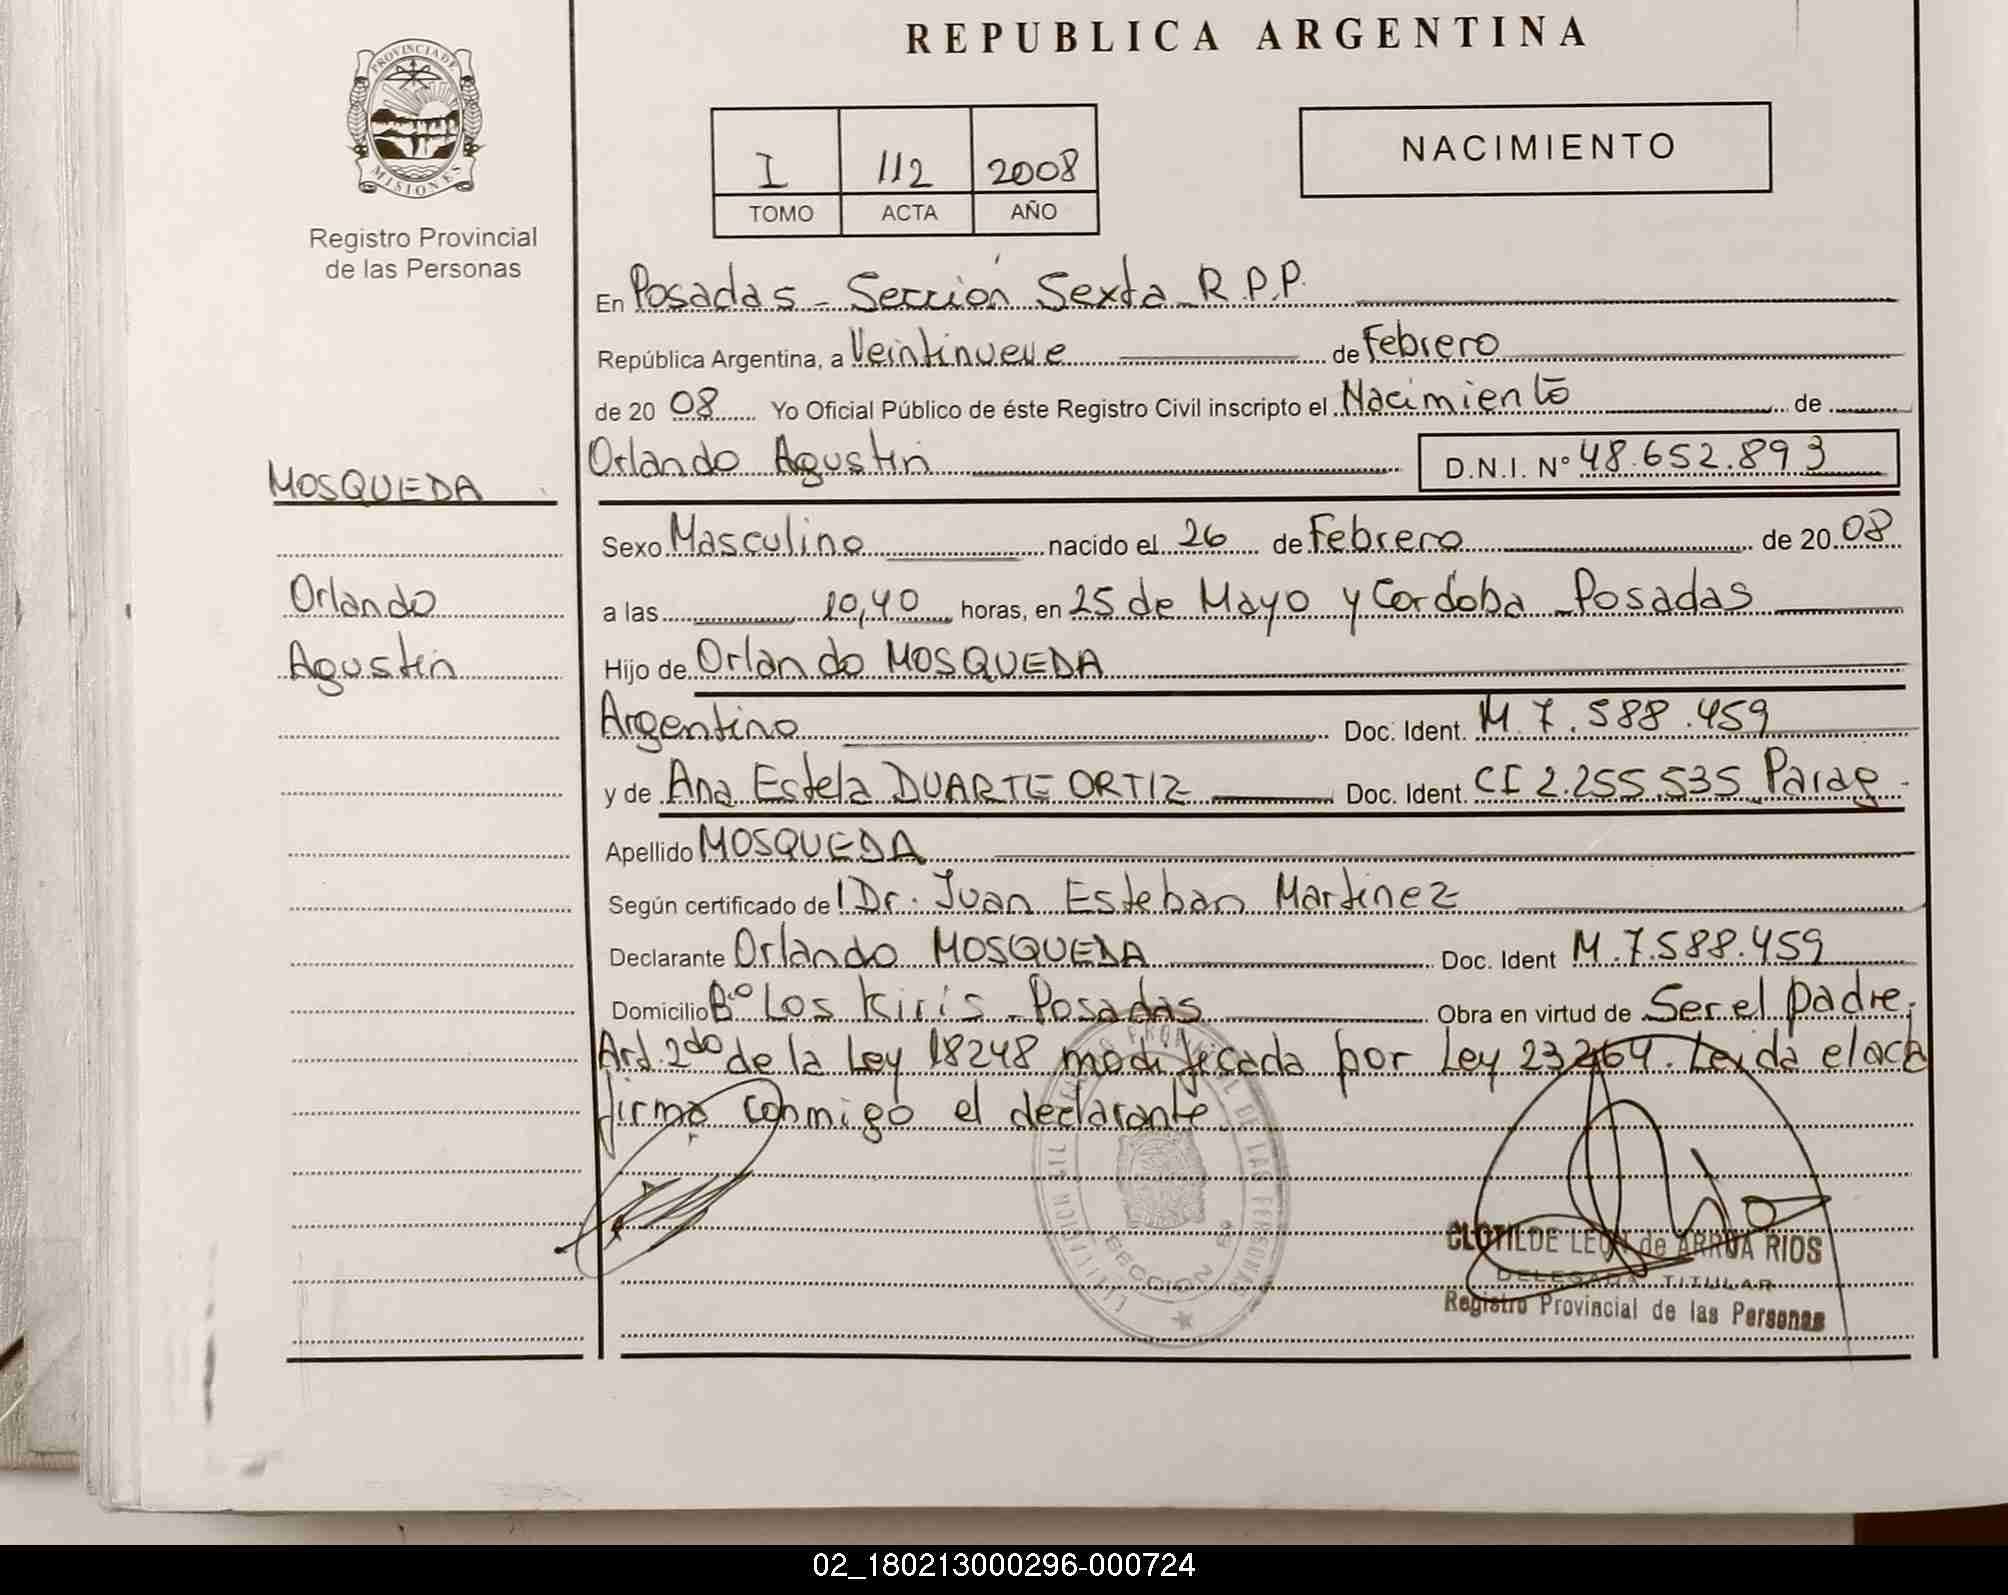 REPUBLICA ARGENTINA
PROVINCIA DE
MISIONES
Registro Provincial
de las Personas
I 112 2008
TOMO ACTA AÑO
NACIMIENTO
En Posadas - Sección Sexta R.P.P.
República Argentina, a Veintinueve de Febrero
de 20 08 Yo Oficial Público de éste Registro Civil inscripto el Nacimiento de
Orlando Agustin D.N.I. Nº 48.652.893
MOSQUEDA
Sexo Masculino nacido el 26 de Febrero de 20 08
Orlando
a las 10,40 horas, en 25 de Mayo y Cordoba - Posadas
Agustin
Hijo de Orlando MOSQUEDA
Argentino Doc. Ident. M.7.588.459
y de Ana Estela DUARTE ORTIZ Doc. Ident. CI 2.255.535 Parag.
Apellido MOSQUEDA
Según certificado del Dr. Juan Esteban Martinez
Declarante Orlando MOSQUEDA Doc. Ident M.7.588.459
Domicilio Bº Los Kiris - Posadas Obra en virtud de Ser el padre.
Art. 2do de la Ley 18248 modificada por Ley 23264. Leida el acta
firma conmigo el declarante.
SECCION 6ª
CLOTILDE LEON de ARRUA RIOS
DELEGADA TITULAR
Registro Provincial de las Personas
02_180213000296-000724